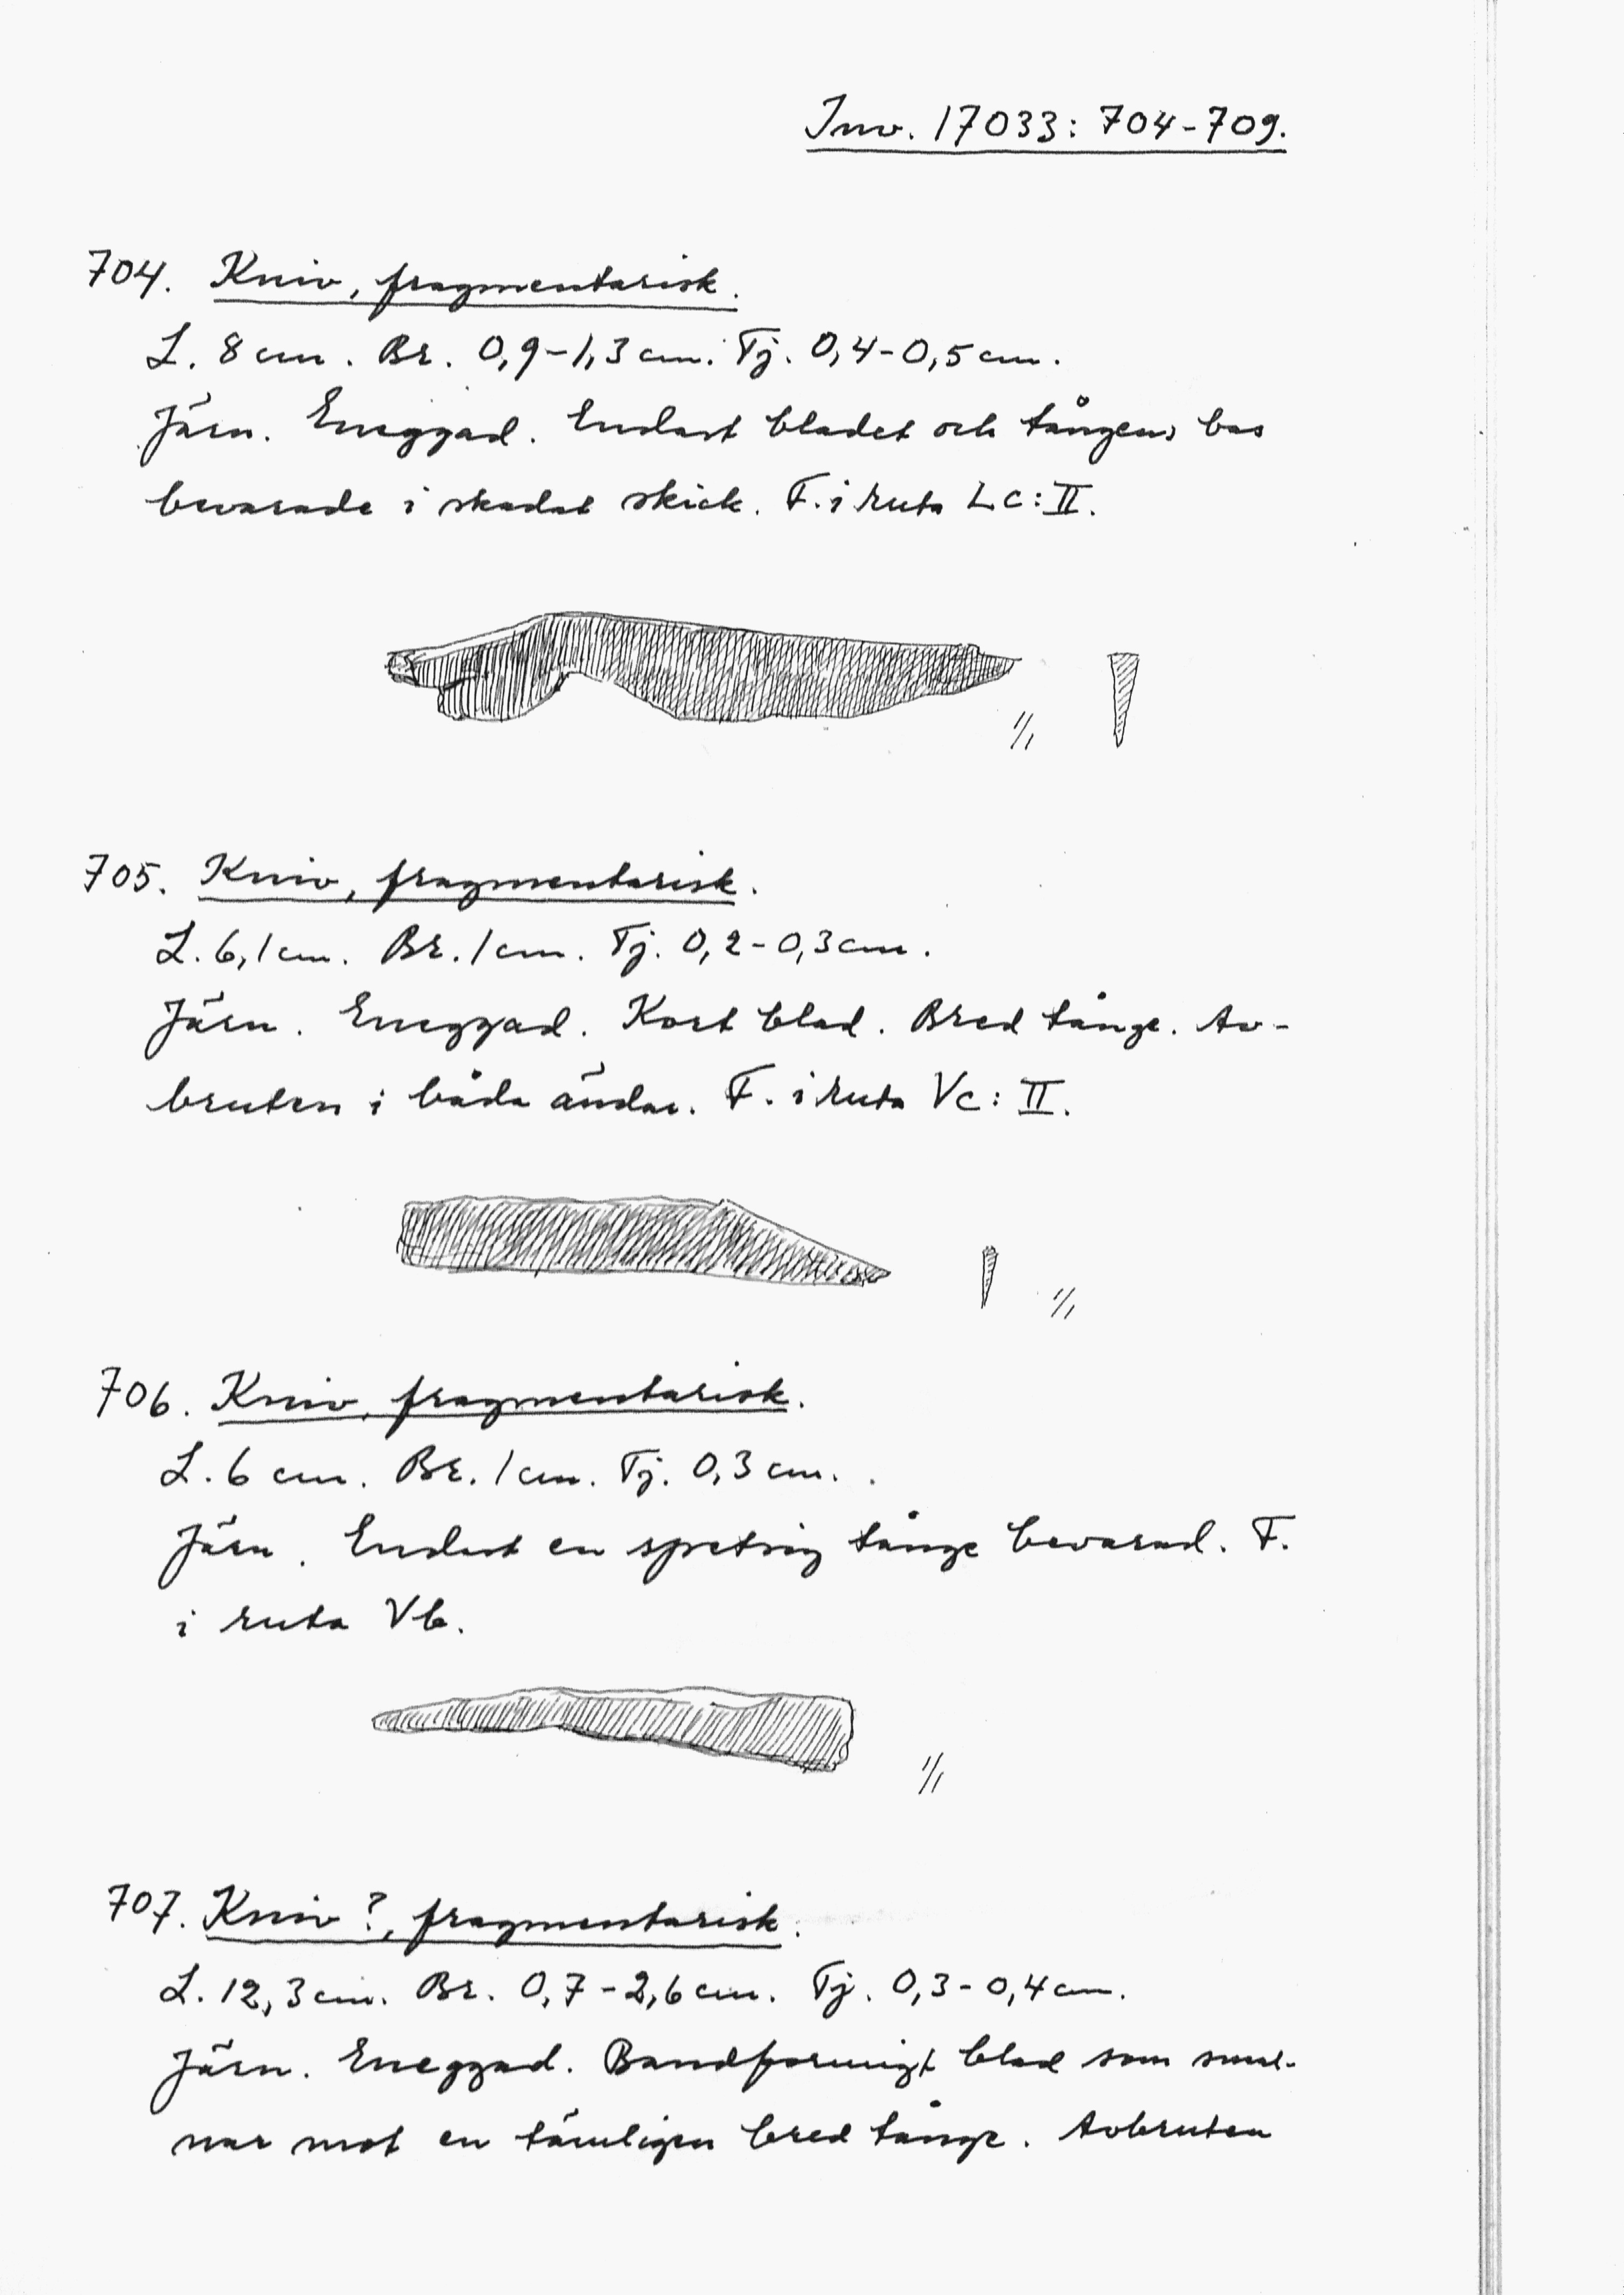 Inv. 17033: 704-709.
704. Kniv, fragmentarisk.
L. 8 cm. Br. 0,9-1,3 cm. Tj. 0,4-0,5 cm.
Järn. Eneggad. Endast bladet och tångens bas
bevarade i skadat skick. F. i ruta Lc: II.
1/1
705. Kniv, fragmentarisk.
L. 6,1 cm. Br. 1 cm. Tj. 0,2-0,3 cm.
Järn. Eneggad. Kort blad. Bred tånge. Av-
bruten i båda ändar. F. i ruta Vc: II.
1/1
706. Kniv, fragmentarisk.
L. 6 cm. Br. 1 cm. Tj. 0,3 cm.
Järn. Endast en spetsig tånge bevarad. F.
i ruta Vb.
1/1
707. Kniv?, fragmentarisk.
L. 12,3 cm. Br. 0,7-2,6 cm. Tj. 0,3-0,4 cm.
Järn. Eneggad. Bandformigt blad som smal-
nar mot en tämligen bred tånge. Avbruten